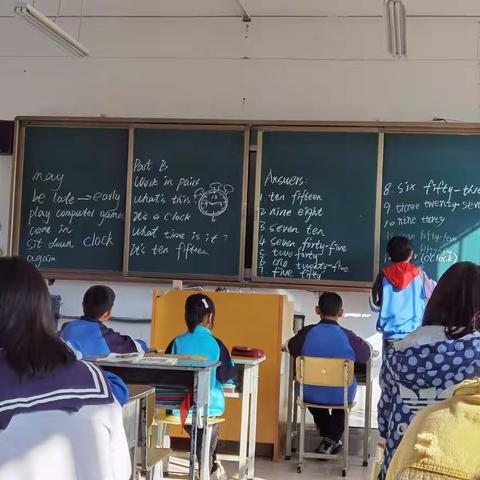 may
be late → early
play computer games
come in
sit down clock
again
Part B
Work in pairs
What's this?
It's a clock
What time is it?
It's ten fifteen
Answers:
1. ten fifteen
2 nine eight
3 seven ten
4 seven forty-five
5 two forty
6 one twenty-five
7 five fifty
8. six fifty-three
9. three twenty seve
10 nine thirty
fifty-five
fifty
(o'clock)